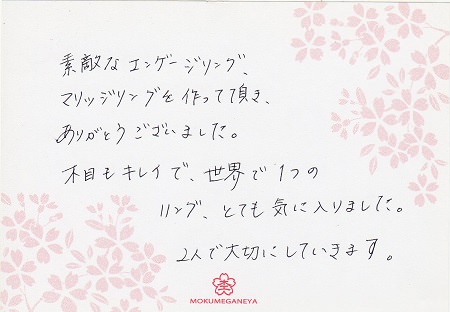 素敵なエンゲージリング、
マリッジリングを作って頂き、
ありがとうございました。
木目もキレイで、世界で1つの
リング、とても気に入りました。
2人で大切にしていきます。
MOKUMEGANEYA